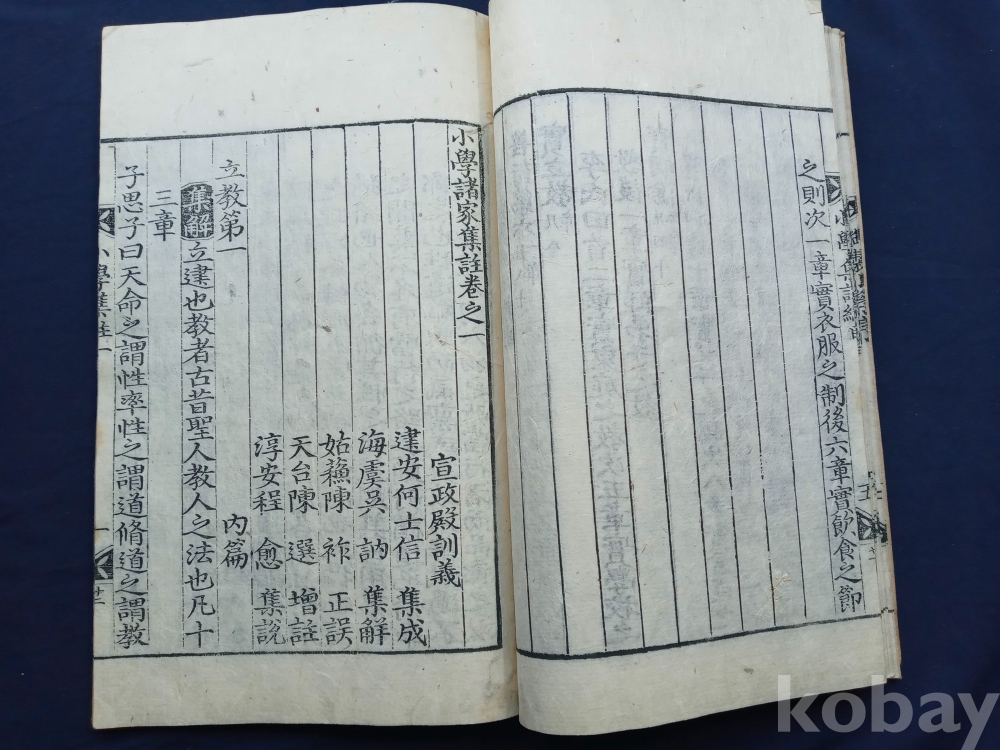 之則次一章實衣服之制後六章實飮食之節
小學諸家集註卷之一
宣政殿訓義
建安何士信 集成
海虞吳 訥 集解
姑蘓陳 祚 正誤
天台陳 選 增註
淳安程 愈 集說
立教第一 內篇
集解 立建也教者古昔聖人教人之法也凡十
三章
子思子曰天命之謂性率性之謂道脩道之謂教
小學集註一
一
kobay